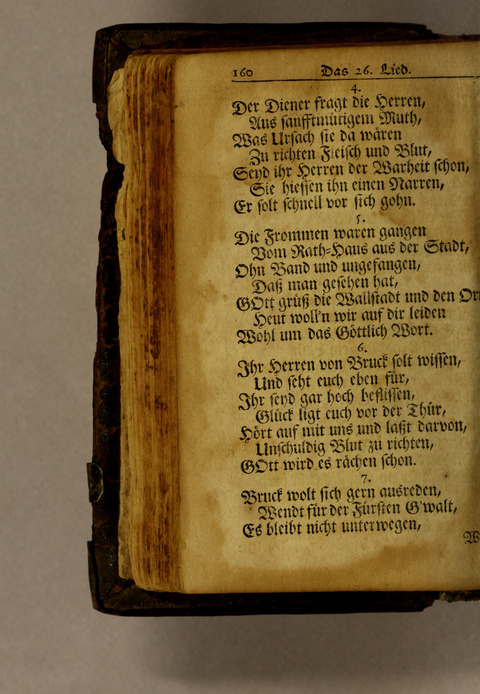 160 Das 26. Lied.
4.
Der Diener fragt die Herren,
Aus sanfftmütigem Muth,
Was Ursach sie da wären
Zu richten Fleisch und Blut,
Seyd ihr Herren der Warheit schon,
Sie hiessen ihn einen Narren,
Er solt schnell vor sich gohn.
5.
Die Frommen waren gangen
Vom Rath-Haus aus der Stadt,
Ohn Band und ungefangen,
Daß man gesehen hat,
GOtt grüß die Wallstadt und den Ort
Heut woll'n wir auf dir leiden
Wohl um das Göttlich Wort.
6.
Ihr Herren von Bruck solt wissen,
Und seht euch eben für,
Ihr seyd gar hoch beflissen,
Glück ligt euch vor der Thür,
Hört auf mit uns und laßt darvon,
Unschuldig Blut zu richten,
GOtt wird es rächen schon.
7.
Bruck wolt sich gern ausreden,
Wendt für der Fürsten G'walt,
Es bleibt nicht unterwegen,